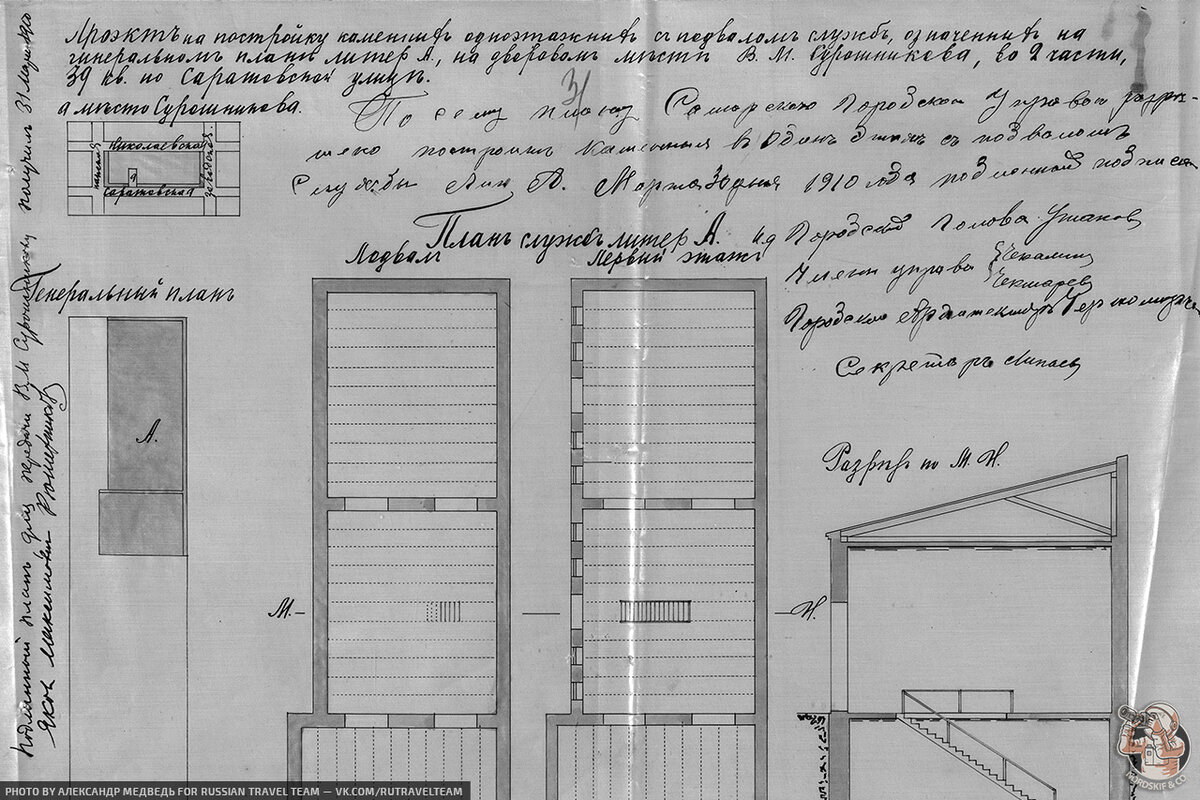 Проэктъ на постройку каменныхъ одноэтажныхъ съ подваломъ службъ, означенныхъ на
генеральномъ планѣ литер А, на дворовомъ мѣстѣ В. М. Сурошникова, во 2 части,
39 кв. по Саратовской улицѣ.
а мѣсто Сурошникова.
31
По сему плану Самарскою Городскою Управою разрѣ-
шено построить каменныя въ одинъ этажъ съ подваломъ
службы Лит А. Марта 30 дня 1910 года подлинной подписали
Николаевская
Саратовская
А
Планъ службъ литер А.
Городской Голова
Подвалъ
Первый этажъ
Члены управы
Чекалинъ
Чекмаревъ
Генеральный планъ
Городской Архитекторъ
Секретарь
А.
Разрѣзъ по М. Н.
М.
Н.
Подлинный планъ для передачи В. М. Сурошникову получилъ 31 марта 1910
Яковъ Максимовъ
NORDSKIF & CO
PHOTO BY АЛЕКСАНДР МЕДВЕДЬ FOR RUSSIAN TRAVEL TEAM — VK.COM/RUTRAVELTEAM